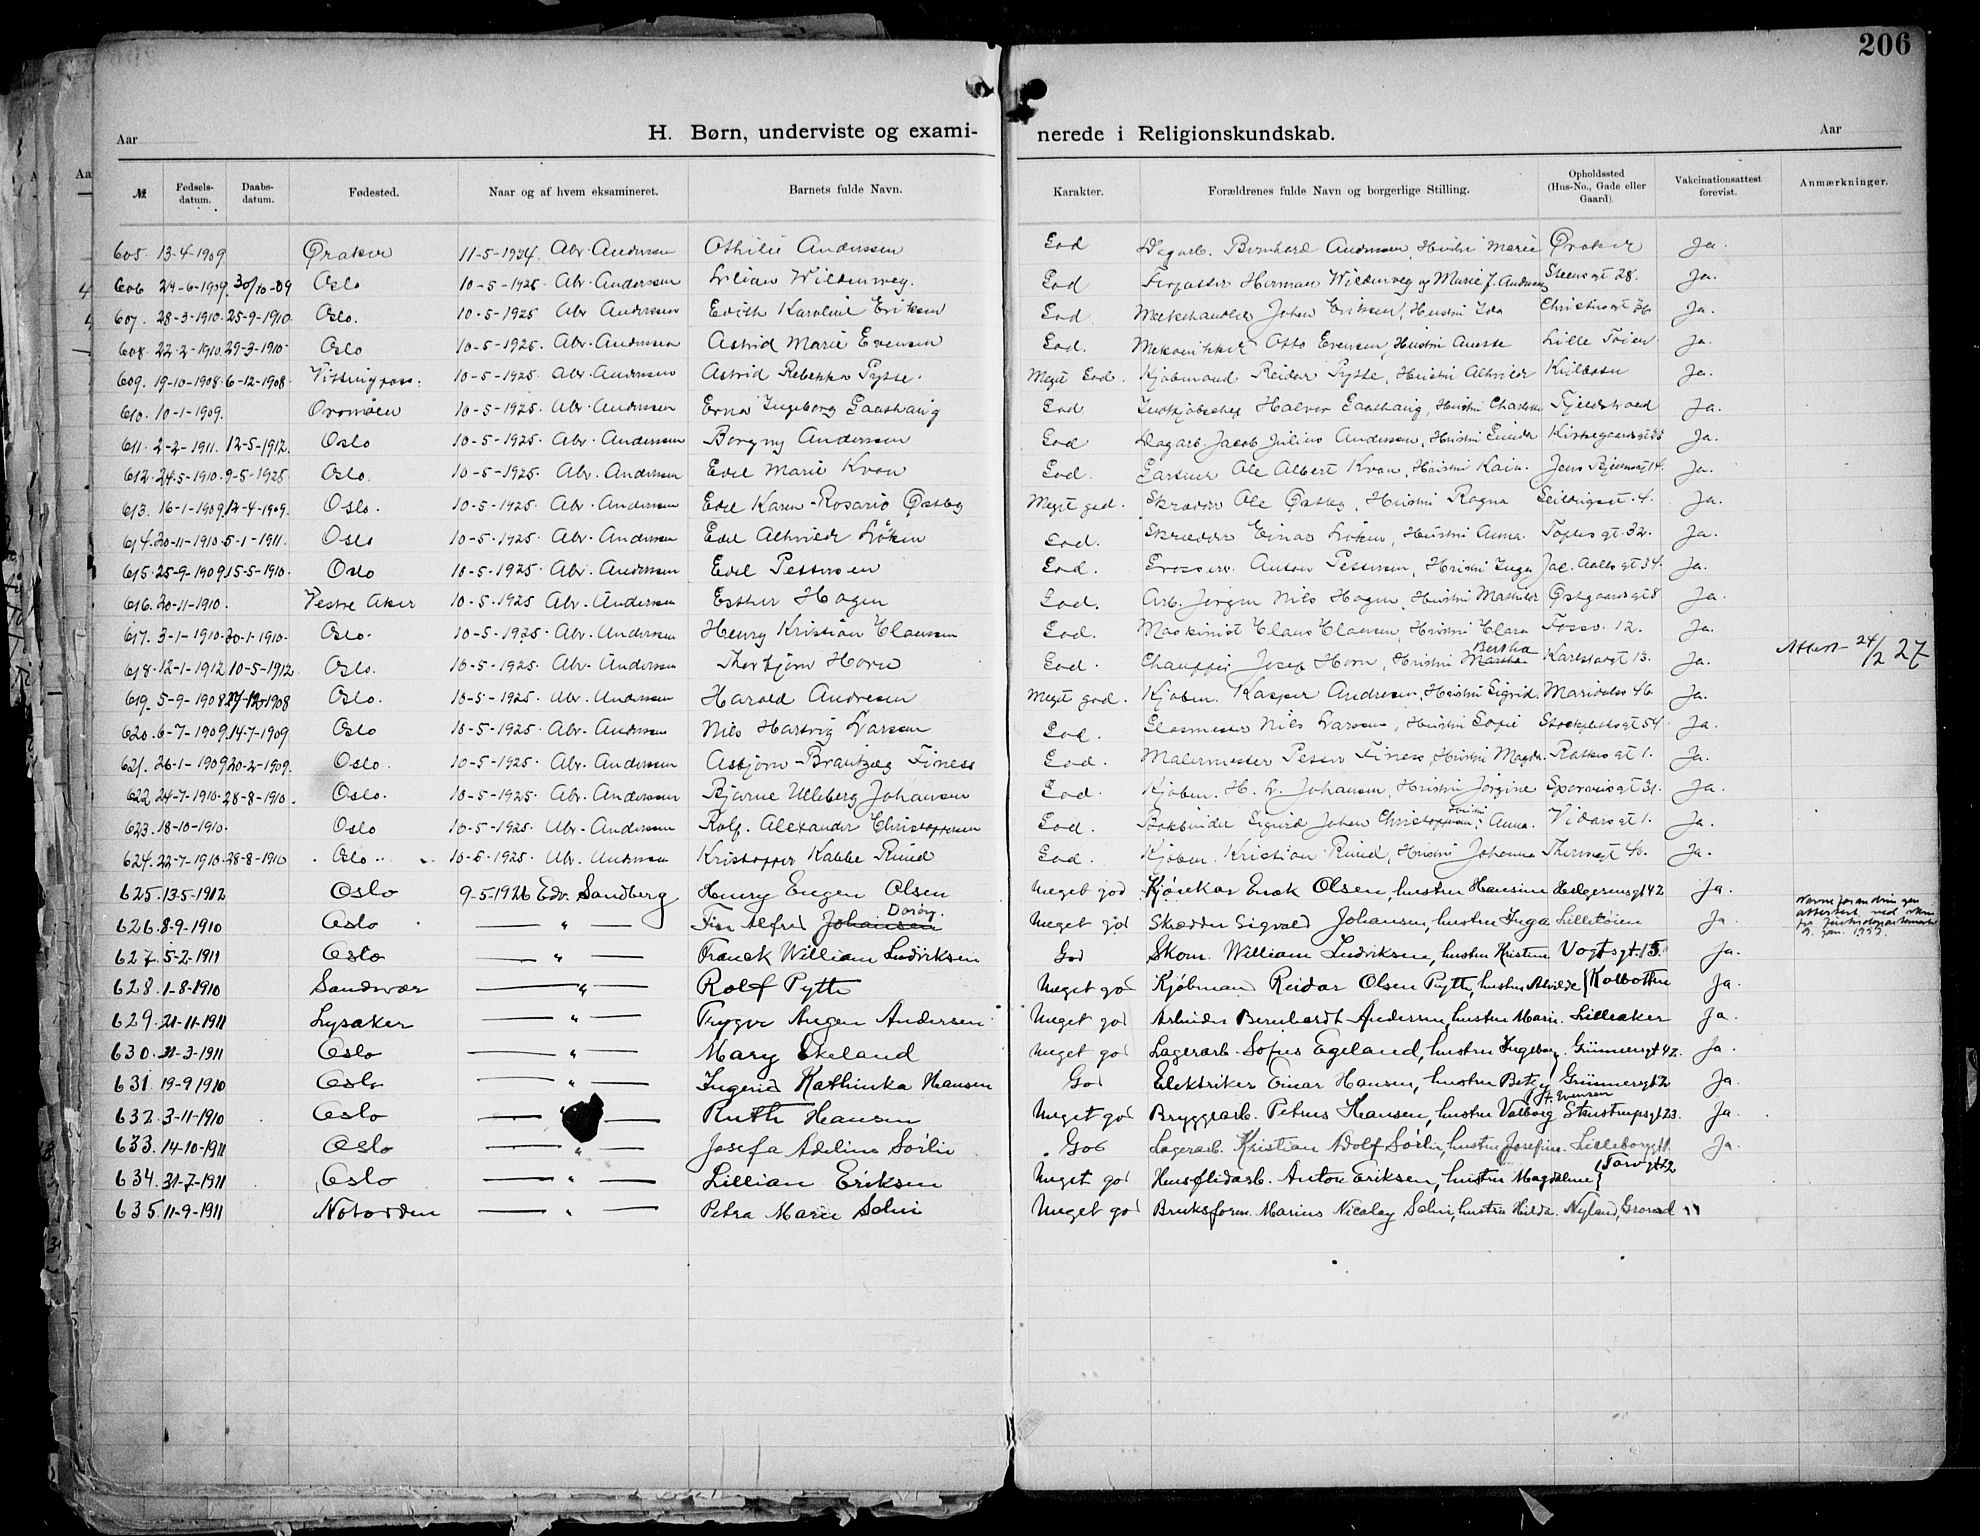 206
Aar H. Børn, underviste og exami- nerede i Religionskundskab. Aar
№ Fødsels-datum. Daabs-datum. Fødested. Naar og af hvem eksamineret. Barnets fulde Navn. Karakter. Forældrenes fulde Navn og borgerlige Stilling. Opholdssted (Hus-No., Gade eller Gaard). Vakcinationsattest forevist. Anmærkninger.
605. 13-4-1909. Øraker 11-5-1924. Abr. Andersen Othilie Andersen God Dagarb. Bernhard Andersen, Hustru Marie Øraker Ja.
606 24-6-1909. 30/10-09 Oslo 10-5-1925. Abr. Andersen Lilian Wildenvey. God Forfatter Herman Wildenvey og Marie J. Andersen Steensgt 28. Ja.
607. 28-3-1910. 25-9-1910. Oslo. 10-5-1925 Abr. Andersen Edith Karoline Eriksen God. Melkehandler Johan Eriksen, Hustru Ida Christiesgt 36 Ja.
608. 22-2-1910. 29-3-1910. Oslo 10-5-1925. Abr. Andersen Astrid Marie Evensen God. Mekanikker Otto Evensen, Hustru Anette Lille Tøien Ja.
609. 19-10-1908. 6-12-1908. 10-5-1925. Abr. Andersen Astrid Rebekka Pytte. Meget God. Kjøbmand Reidar Pytte, Hustru Alhvilde Ja.
610. 10-1-1909. 10-5-1925. Abr. Andersen Erna Ingeborg Gaathaug God Halvor Gaathaug, Hustru Ja.
611. 2-2-1911. 12-5-1912. Oslo 10-5-1925. Abr. Andersen Borgny Andersen God Dagarb. Jacob Julius Andersen, Hustru Ja.
612. 24-5-1910. 9-5-1925 Oslo. 10-5-1925. Abr. Andersen Edel Marie Kvan God. Gartner Ole Albert Kvan, Hustru Ja.
613. 16-1-1909. 12-4-1909. Oslo. 10-5-1925. Abr. Andersen Edel Karen-Rosario Østby Meget god. Skrædder Ole Østby, Hustru Ragna Seildugsgt. 4. Ja.
614. 20-11-1910. 5-1-1911. Oslo 10-5-1925. Abr. Andersen Edel Alhvilde Løken God. Skrædder Einar Løken, Hustru Anna. Toftesgt. 32. Ja.
615. 25-9-1909. 15-5-1910. Oslo 10-5-1925. Abr. Andersen Edel Pettersen God. Grosserer Anton Pettersen, Hustru Inga Jac. Aallsgt 34. Ja.
616. 20-11-1910. Vestre Aker 10-5-1925. Abr. Andersen Esther Hagen God. Arb. Jørgen Nils Hagen, Hustru Mathilde Østgaardsgt 8 Ja.
617. 3-1-1910. 20-1-1910. Oslo. 10-5-1925. Abr. Andersen Henry Kristian Clausen God. Maskinist Claus Clausen, Hustru Clara Fossv. 12. Ja.
618. 12-1-1912 10-5-1912. Oslo. 10-5-1925. Abr. Andersen Thorbjørn Horn God. Chauffør Josef Horn, Hustru Martha Bertha Karlstadgt 13. Ja. Attest 24/2 27
619. 5-9-1908 27-12-1908 Oslo. 10-5-1925. Abr. Andersen Harald Andresen Meget god. Kjøbm. Kasper Andresen, Hustru Sigrid. Maridalsv 46 Ja.
620. 6-7-1909. 14-7-1909 Oslo 10-5-1925. Abr. Andersen Nils Hartvig Larsen God. Glasmester Nils Larsen, Hustru Sofie Stockfletsgt 54. Ja.
621. 26-1-1909 20-2-1909. Oslo. 10-5-1925. Abr. Andersen Asbjørn-Brantzeg Finess God. Malermester Petter Finess, Hustru Magda. Rathesgt 1. Ja.
622 24-7-1910. 28-8-1910. Oslo. 10-5-1925. Abr. Andersen Bjarne Ulleberg Johansen God. Kjøbm. H. L. Johansen, Hustru Jørgine Sporveisgt 31. Ja.
623. 18-10-1910. Oslo 10-5-1925. Abr. Andersen Rolf. Alexander Christoffersen God. Bokbinder Sigurd Johan Christoffersen, Hustru Anna. Vidarsgt 1. Ja.
624. 22-7-1910. 28-8-1910 Oslo. 10-5-1925. Abr. Andersen Kristoffer Kabbe Ruud God. Kjøbm. Kristian Ruud, Hustru Johanna Ja.
625. 13-5-1912 Oslo 9-5-1926 Edv. Sandberg Henry Eugen Olsen Meget god Enok Olsen, hustru Hansine Helgesensgt 42 Ja.
626. 8-9-1910 Oslo — " — Finn Alfred Johansen Meget god Skrædder Sigvald Johansen, hustru Inga Lilletøien Ja Navneforandringen attestert ved
627. 5-2-1911 Oslo — " — Franck William Ludviksen God Skom. William Ludviksen, hustru Kristine Vogtsgt. 15. Ja.
628. 1-8-1910 Sandsvær — " — Rolf Pytte Meget god Kjøbman Reidar Olsen Pytte, hustru Alvilde Kolbotten Ja.
629. 21-11-1911 Lysaker — " — Trygve Augen Andersen Meget god Arbeider Bernhardt Andersen, hustru Marie. Lilleaker Ja.
630. 21-3-1911 Oslo — " — Mary Ekeland Meget god Lagerarb. Sofus Egeland, hustru Ingeborg. Grünnersgt 42. Ja
631. 19-9-1910 Oslo — " — Ingerid Kathinka Hansen God Elektriker Einar Hansen, hustru Betsy f. Evensen Grünnersgt 2 Ja.
632. 3-11-1910 Oslo — " — Ruth Hansen Meget god Bryggearb. Petrus Hansen, hustru Valborg Steenstrupsgt 23. Ja.
633. 14-10-1911 Oslo — " — Josefa Adeline Sørlie God Lagerarb. Kristian Adolf Sørlie, hustru Josefine. Lilleborggt 1 Ja.
634. 31-7-1911 Oslo — " — Lillian Eriksen Meget god Husflidarb. Anton Eriksen, hustru Magdalene Torvgt 2
635. 11-9-1911 Notodden — " — Petra Marie Solni Meget god Bruksform. Marius Nicolay Solni, hustru Hilda. Nyland, Grorud "